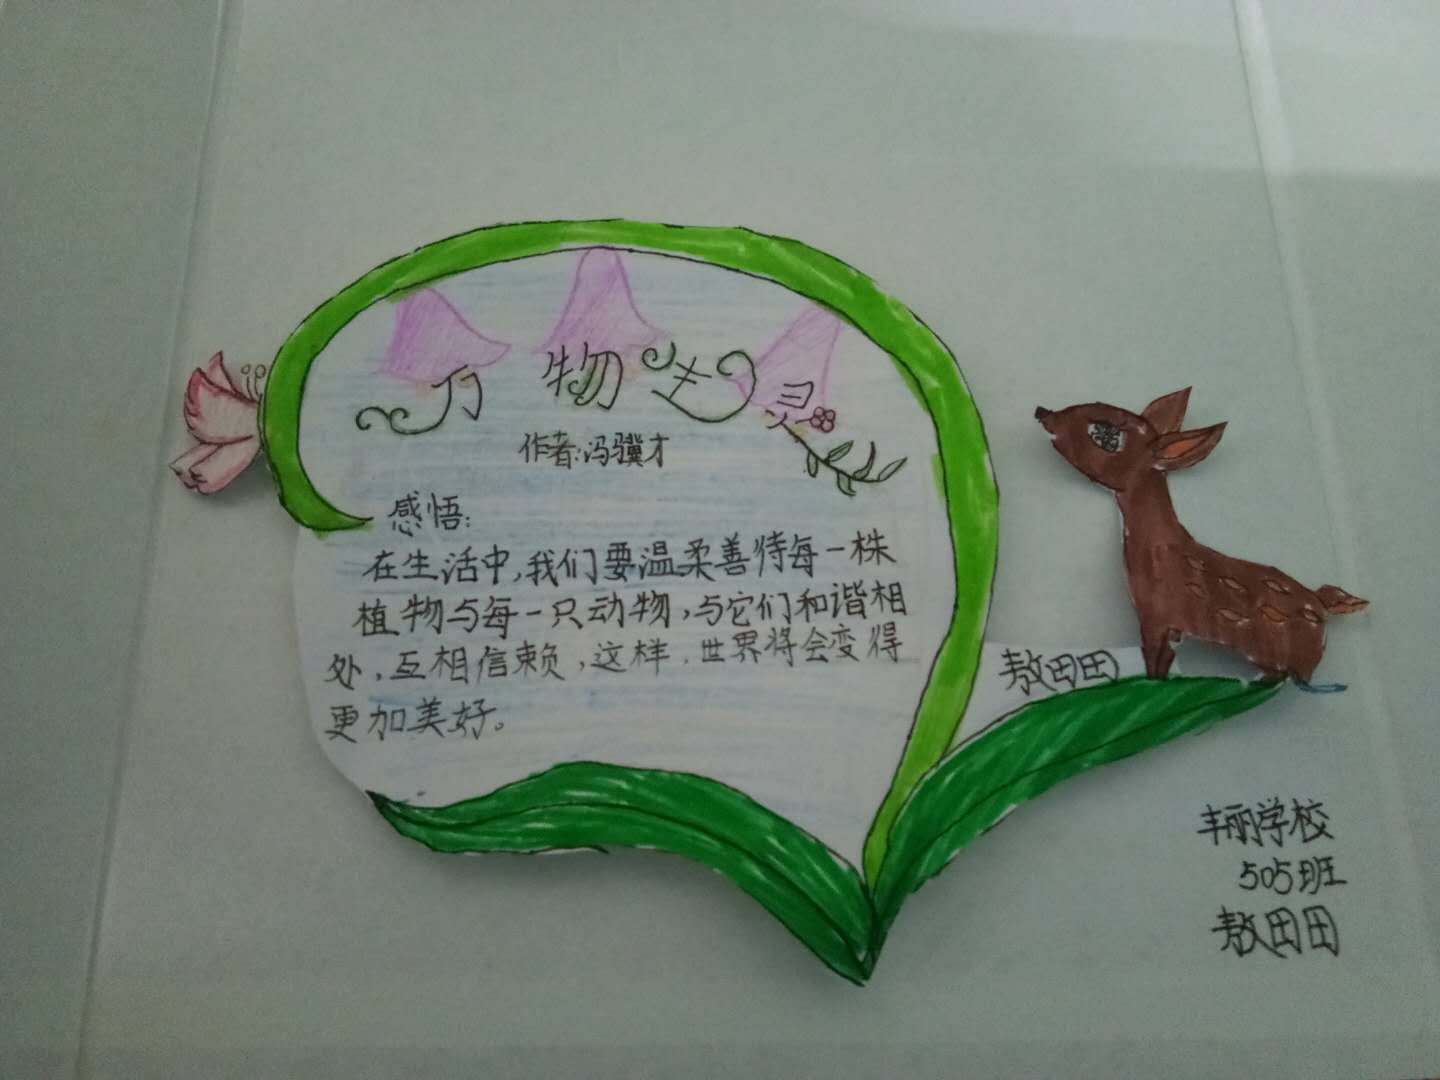 万物生灵
作者:冯骥才
感悟:
在生活中,我们要温柔善待每一株
植物与每一只动物,与它们和谐相
处,互相信赖,这样,世界将会变得
更加美好。
敖田田
丰丽学校
505班
敖田田